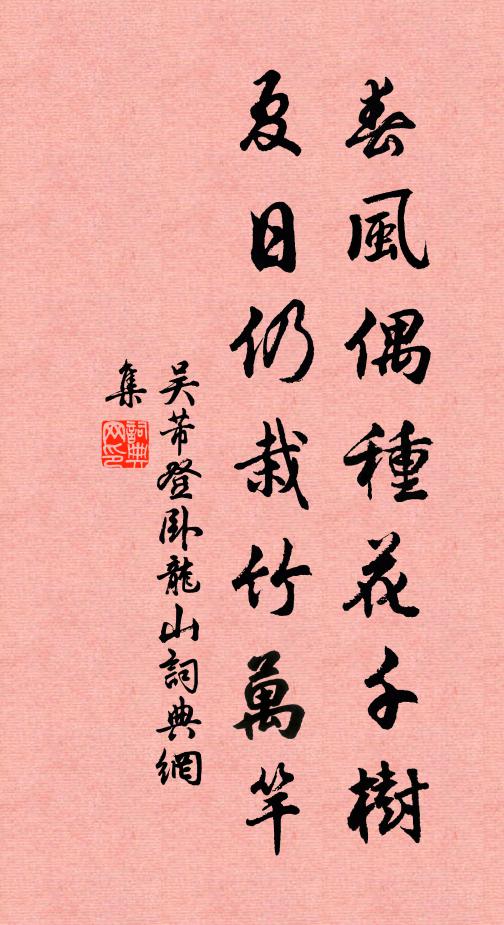 春風偶種花千樹
夏日仍栽竹萬竿
吴芾登卧龍山詞典網
集
詞典
网印